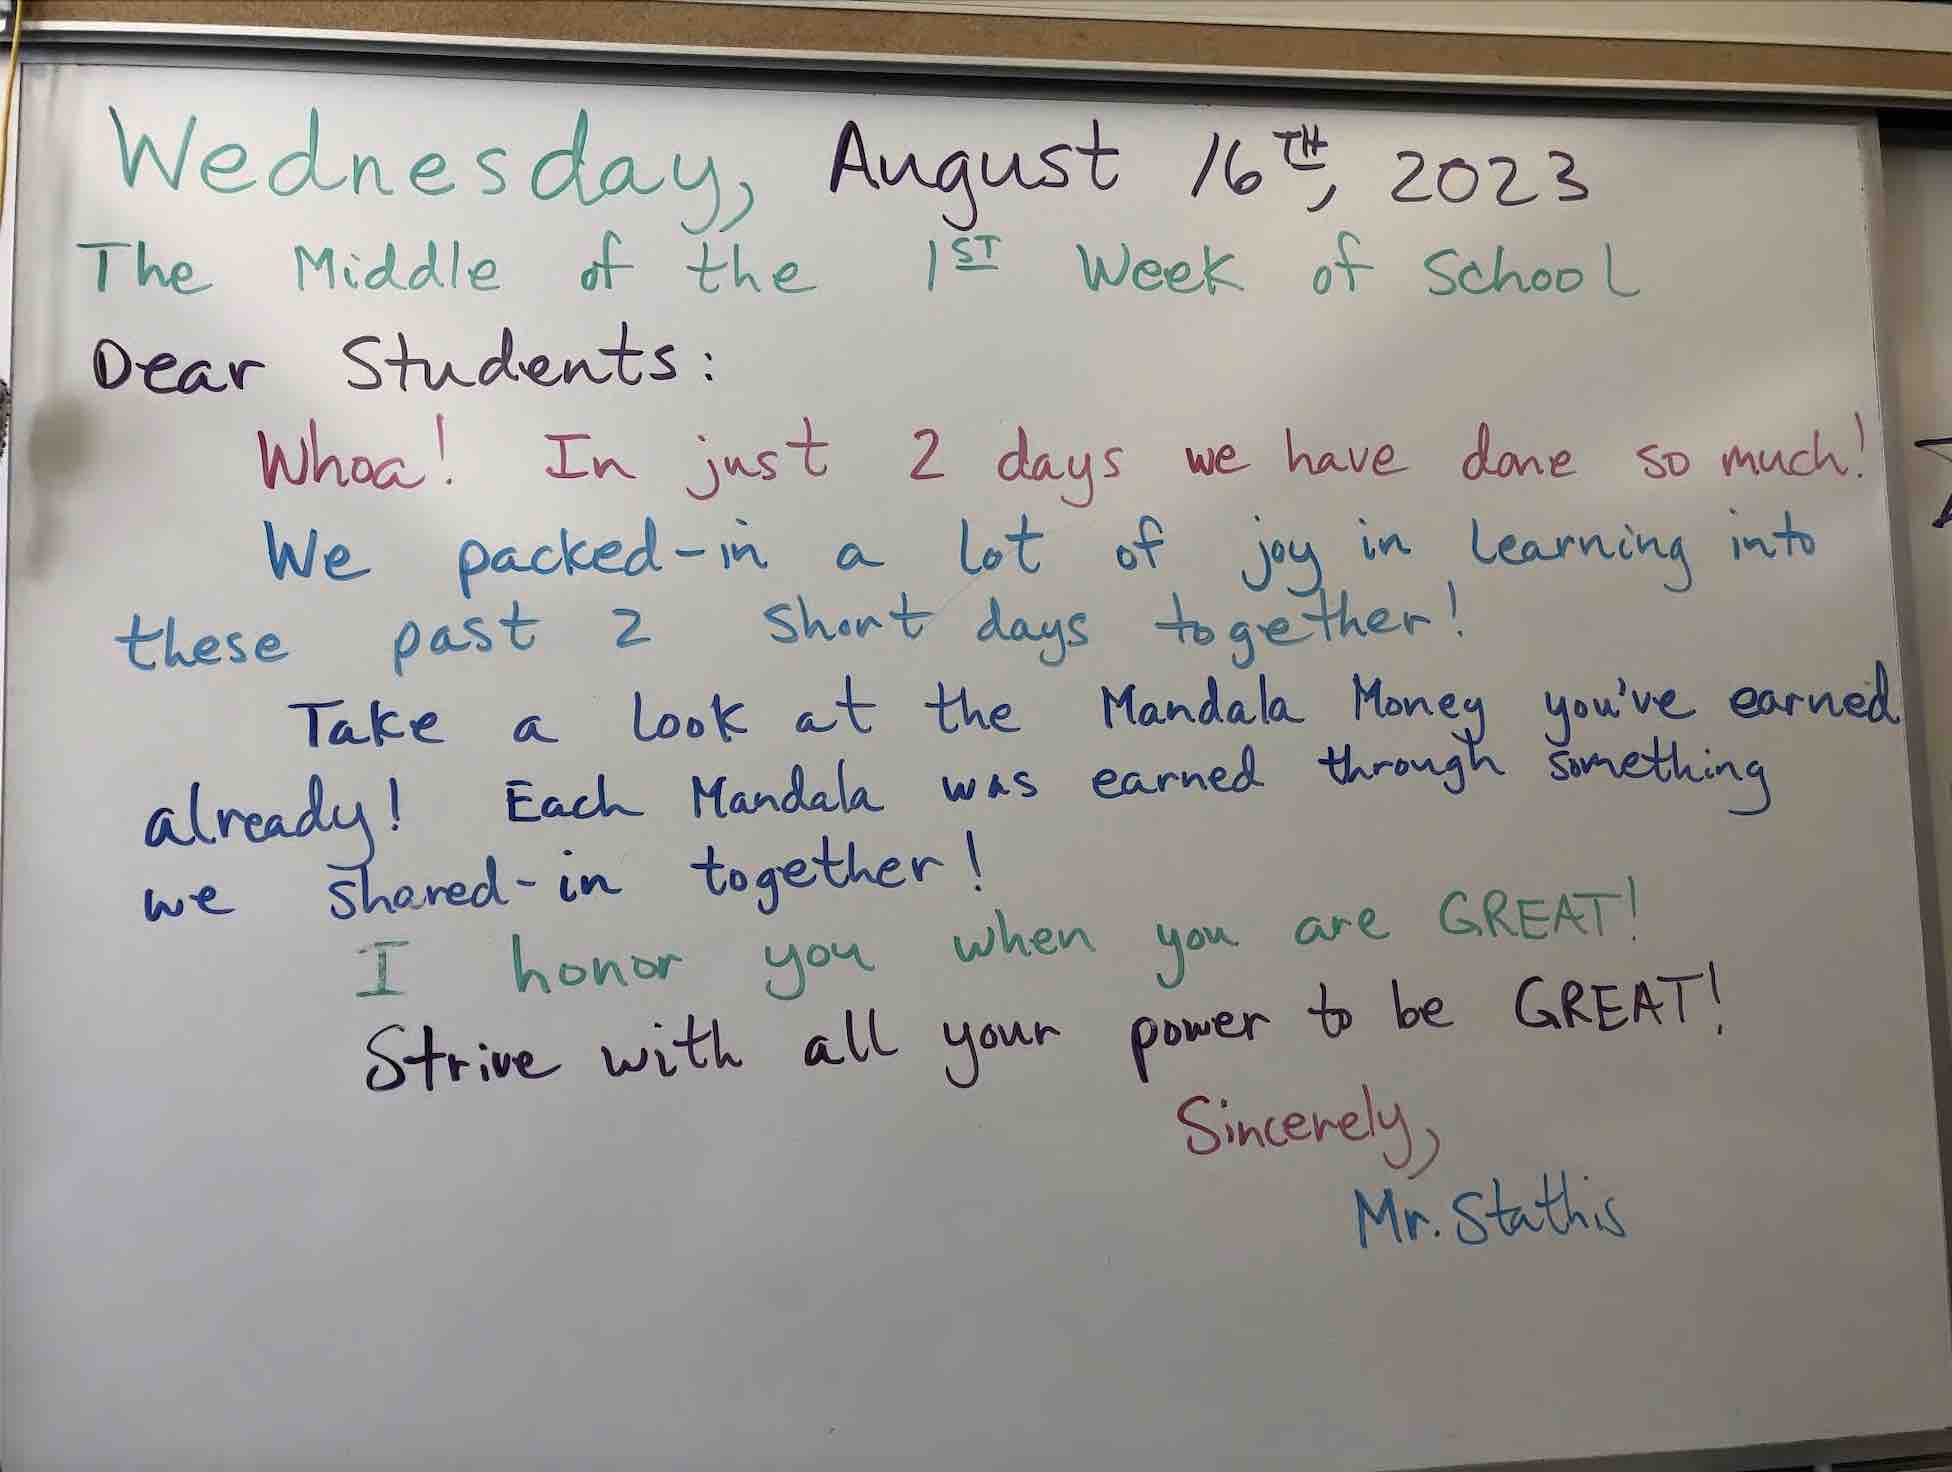 Wednesday, August 16TH, 2023
The Middle of the 1ST Week of School
Dear Students:
Whoa! In just 2 days we have done so much!
We packed-in a lot of joy in learning into
these past 2 short days together!
Take a look at the Mandala Money you've earned
already! Each Mandala was earned through something
we shared-in together!
I honor you when you are GREAT!
Strive with all your power to be GREAT!
Sincerely,
Mr. Stathis